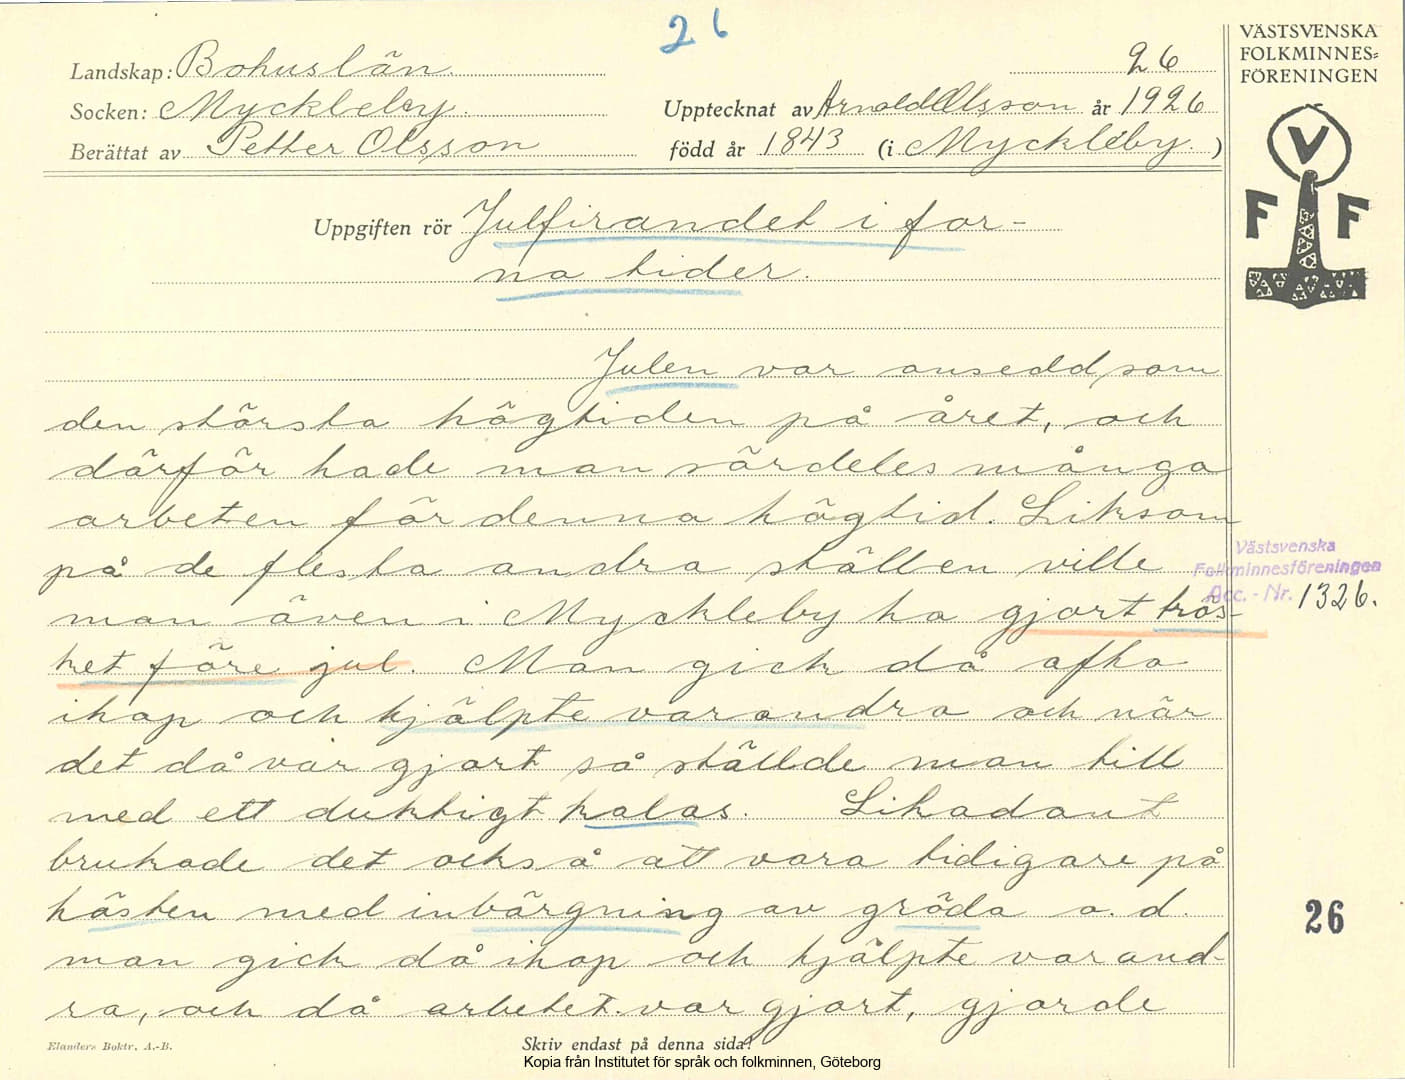 26
VÄSTSVENSKA
FOLKMINNES=
FÖRENINGEN
Landskap: Bohuslän.
26
Socken: Myckleby.
Upptecknat av Arnold Olsson år 1926
Berättat av Petter Olsson
född år 1843 (i Myckleby.)
V
F F
Uppgiften rör Julfirandet i for-
na tider.
Julen var ansedd som
den största högtiden på året, och
därför hade man särdeles många
arbeten för denna högtid. Liksom
på de flesta andra ställen ville
Västsvenska
Folkminnesföreningen
Acc. - Nr. 1326.
man även i Myckleby ha gjort trös-
ket före jul. Man gick då ofta
ihop och hjälpte varandra och när
det då var gjort så ställde man till
med ett duktigt kalas. Likadant
brukade det också att vara tidigare på
hösten med inbärgning av gröda o. d.
26
man gick då ihop och hjälpte varand-
ra, och då arbetet var gjort, gjorde
Elanders Boktr. A.-B.
Skriv endast på denna sida!
Kopia från Institutet för språk och folkminnen, Göteborg